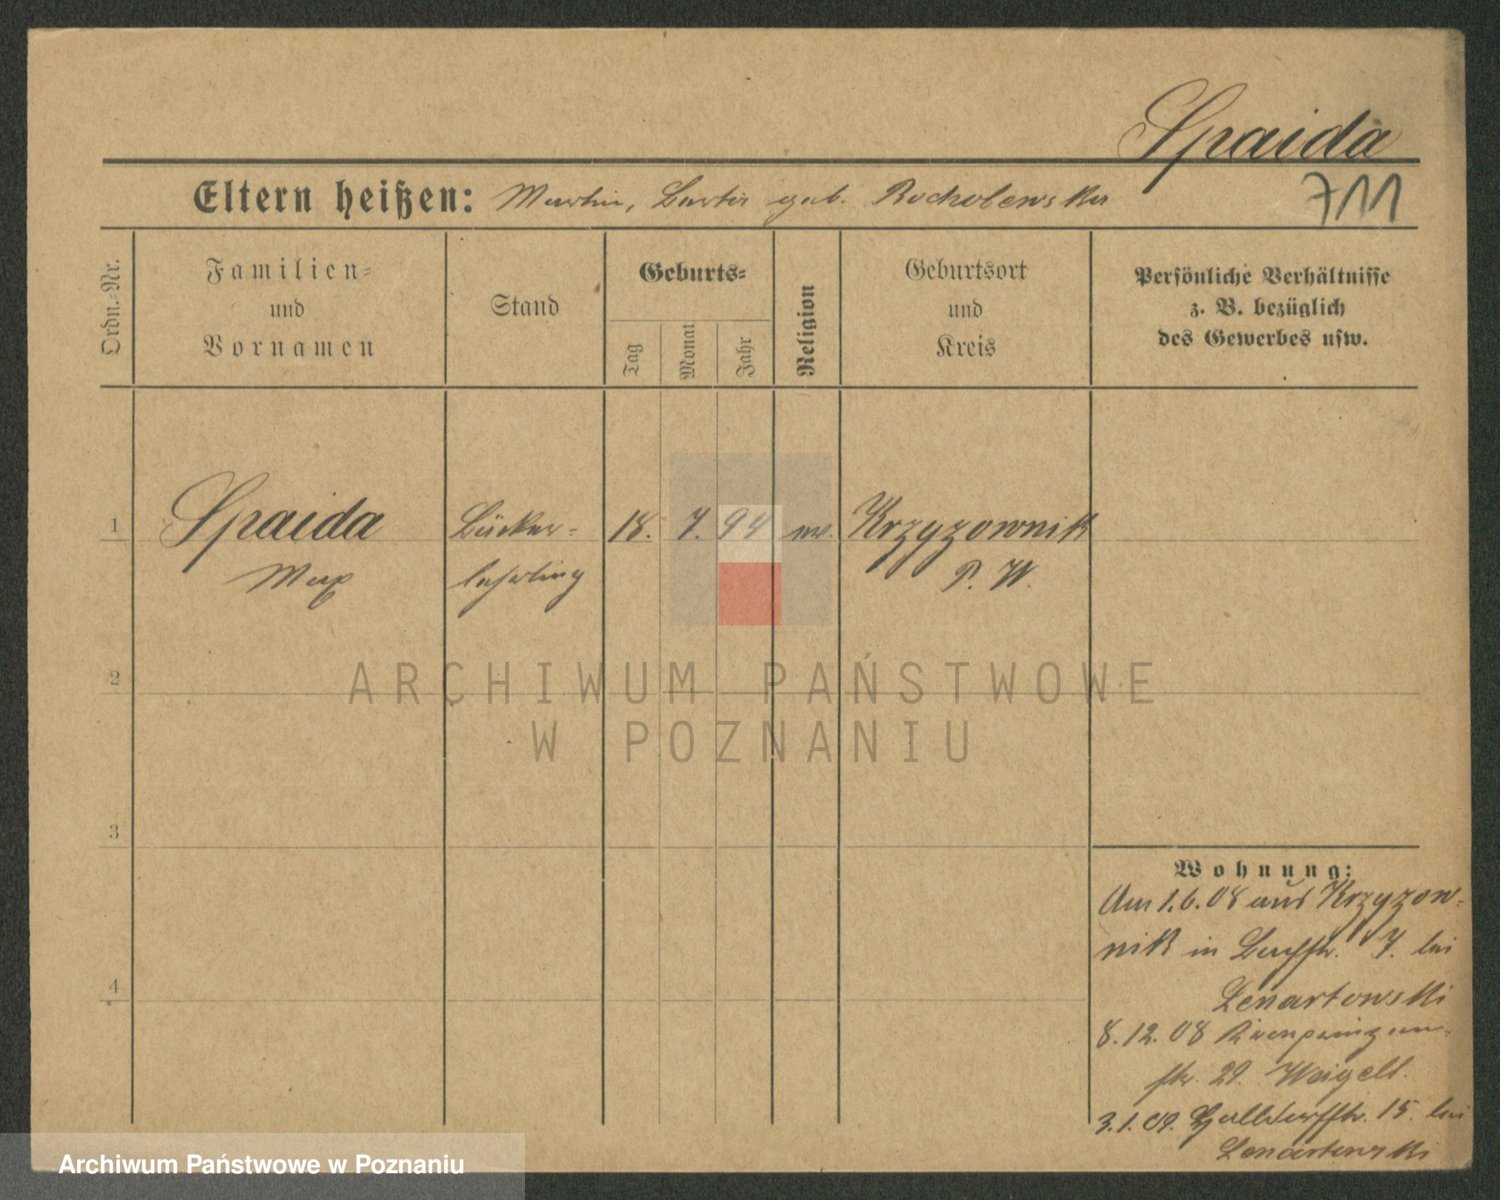 Spaida
Eltern heißen: Martin, geb.
711
Ordn.-Nr.
Familien-
und
Vornamen
Stand
Geburts-
Tag
Monat
Jahr
Religion
Geburtsort
und
Kreis
Persönliche Verhältnisse
z. B. bezüglich
des Gewerbes usw.
1
Spaida
Max
Bäcker-
lehrling
18.
7.
94
ev.
Krzyzownik
P. W.
2
ARCHIWUM PAŃSTWOWE
W POZNANIU
3
4
Wohnung:
Am 1.6.08 aus Krzyzow-
nik in 7. bei
Lenartowski
8.12.08 Kronprinzen-
str. 29. Weigelt.
3.1.09. Halldorfstr. 15. bei
Lenartowski
Archiwum Państwowe w Poznaniu